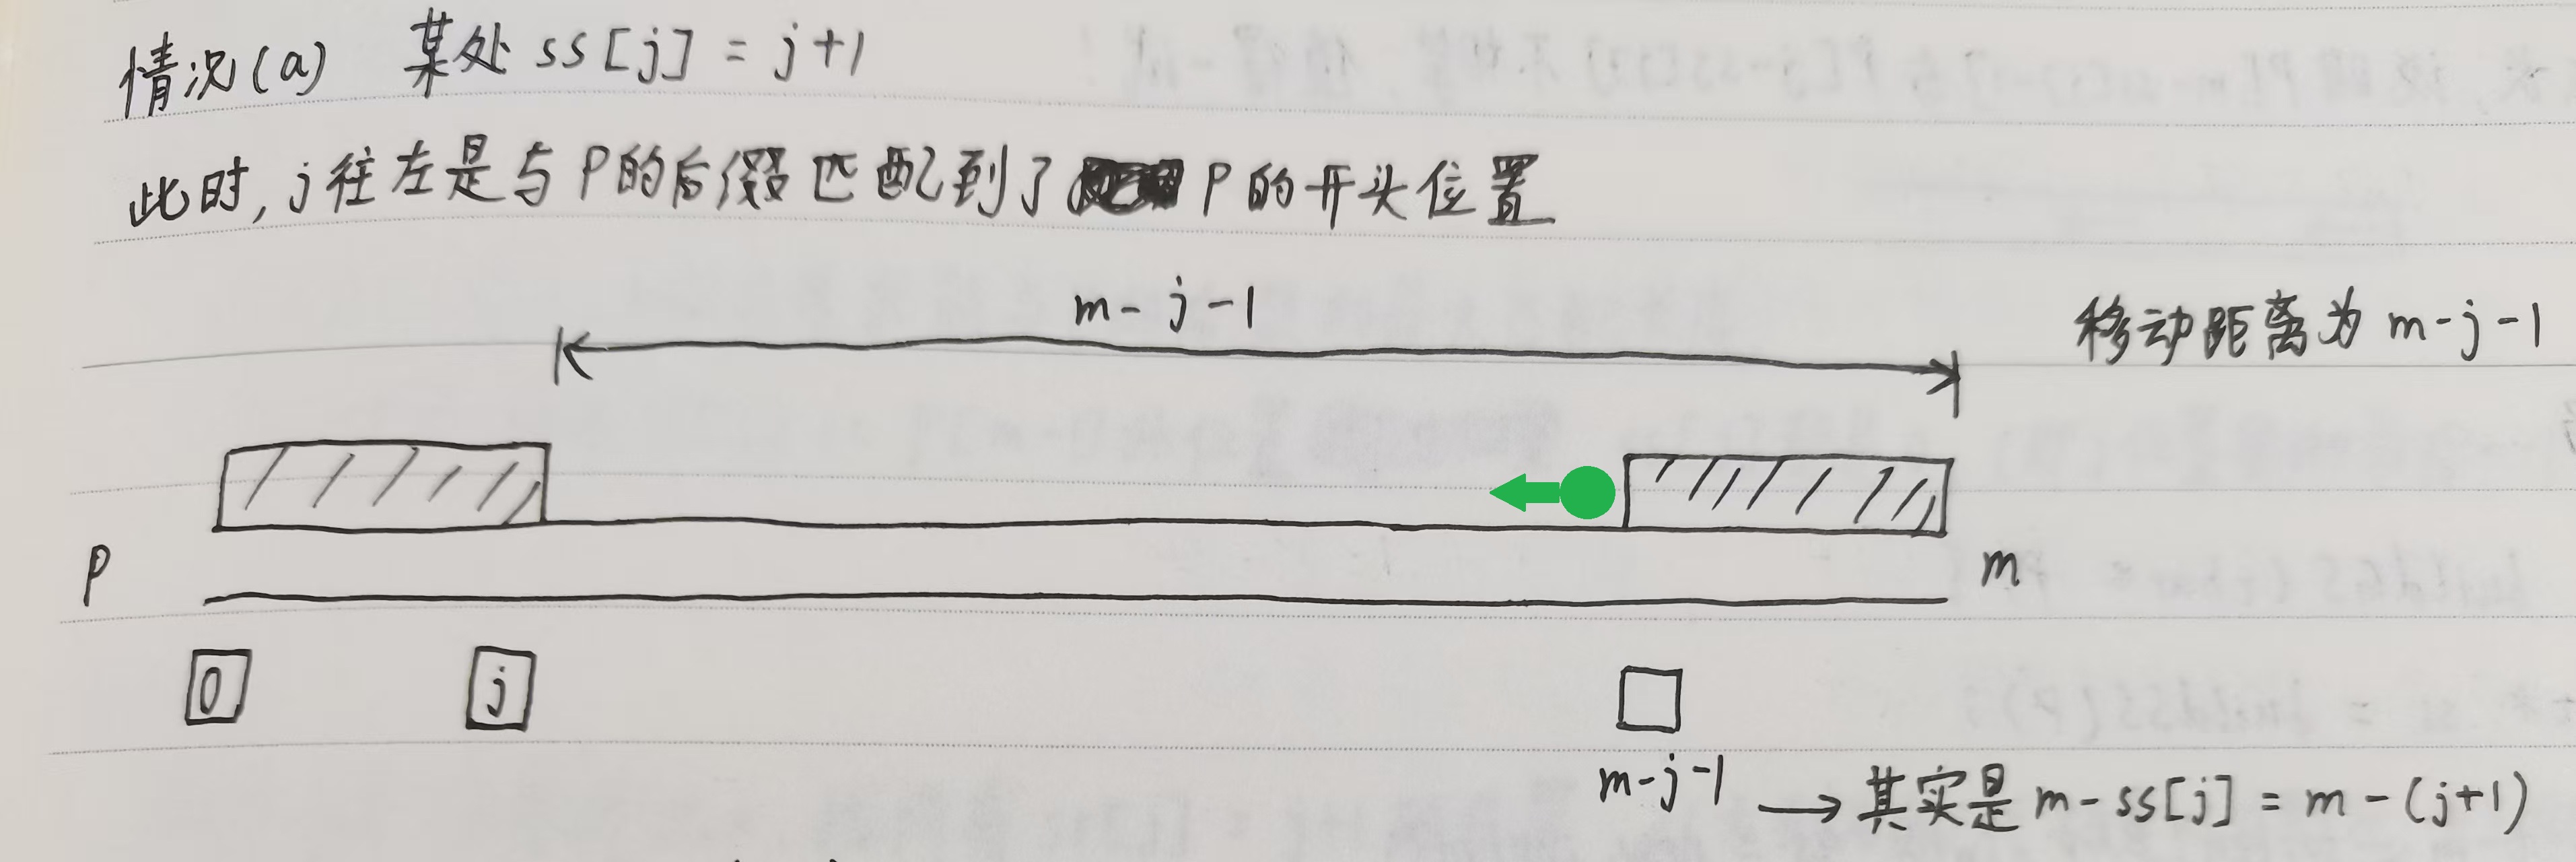 情况(a) 某处 ss[j] = j+1
此时, j往左是与P的后缀匹配到了P的开头位置
m-j-1
移动距离为 m-j-1
P
m
0
j
m-j-1 → 其实是 m-ss[j] = m-(j+1)